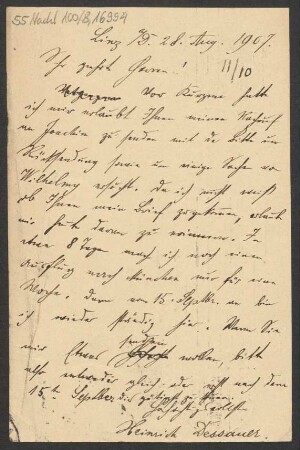 55 Nachl 100/B, 16994
Linz a/D. 28. Aug. 1907.
11/10
Sehr geehrte Herren!
Vor Kurzem hatte
ich mir erlaubt Ihnen meinen Nachruf
an Joachim zu senden mit der Bitte um
Rücksendung sowie um einige Sache von
Wilhelmy ersucht. Da ich nicht weiß
ob Ihnen mein Brief zugekommen, erlaube
mir heute daran zu erinnern. In
etwa 8 Tagen mach ich noch einen
Ausflug nach München nur für eine
Woche, dann vom 15. Septbr. an bin
ich wieder ständig hier. Wenn Sie
mir Etwas senden wollen, bitte
also entweder gleich oder erst nach dem
15ten Septbr.
Heinrich Dessauer.